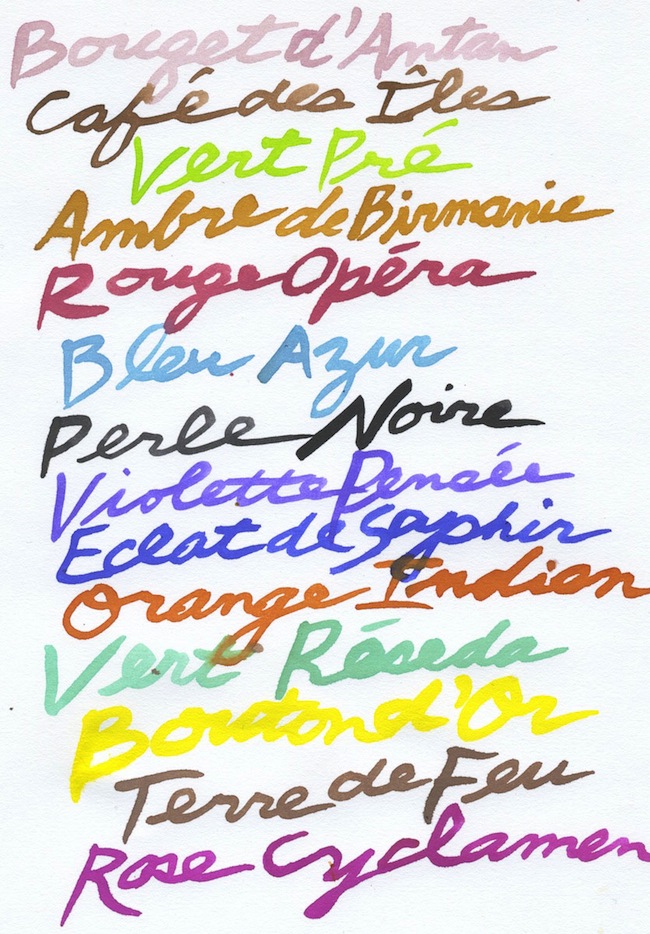 Bouget d'Antan
Café des Îles
Vert Pré
Ambre de Birmanie
Rouge Opéra
Bleu Azur
Perle Noire
Violette Pensée
Éclat de Saphir
Orange Indien
Vert Réseda
Bouton d'Or
Terre de Feu
Rose Cyclamen